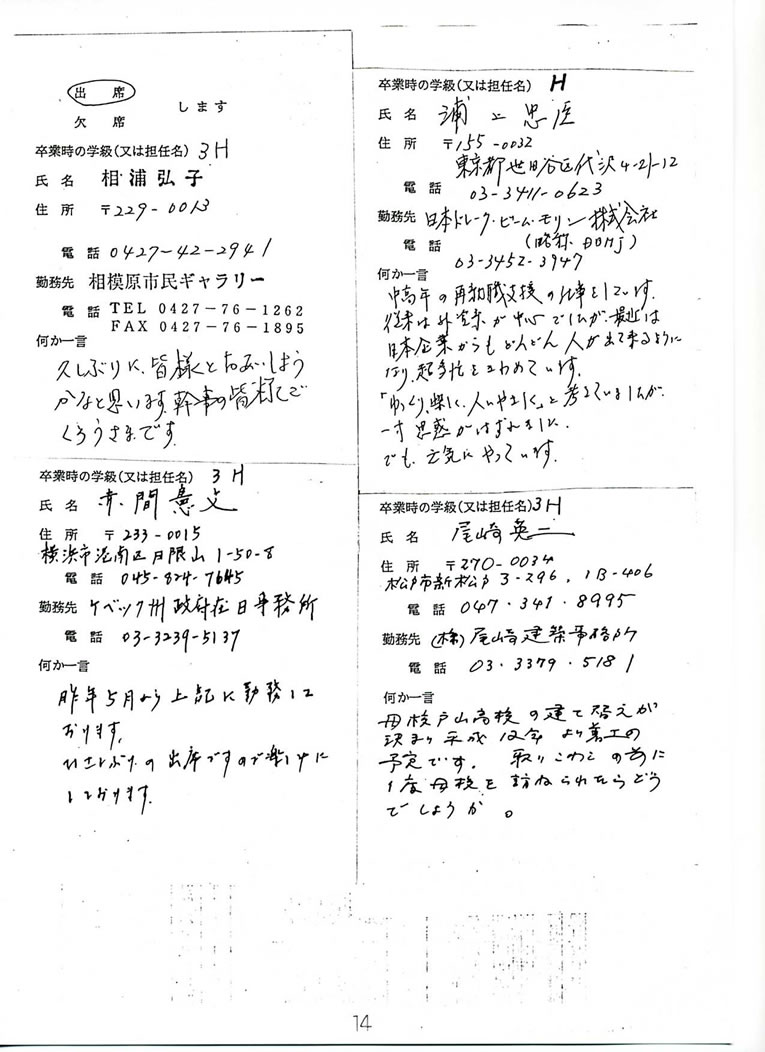 出席
欠席
します
卒業時の学級(又は担任名) 3H
氏名 相浦弘子
住所 〒229-0013
電話 0427-42-2941
勤務先 相模原市民ギャラリー
電話 TEL 0427-76-1262
FAX 0427-76-1895
何か一言
久しぶりに、皆様とお会いしよう
かなと思います。幹事の皆様
くろうさまです。
卒業時の学級(又は担任名) 3H
氏名 赤間憙文
住所 〒233-0015
横浜市港南区日限山 1-50-8
電話 045-824-7645
勤務先 ケベック州政府在日事務所
電話 03-3239-5137
何か一言
昨年5月から上記に勤務して
おります。
ひさしぶりの出席ですので楽しみに
しております。
卒業時の学級(又は担任名) H
氏名 浦上忠
住所 〒155-0032
東京都世田谷区代沢4-21-12
電話 03-3411-0623
勤務先 日本ドレーク・ビーム・モリン株式会社
電話 (略称 DBMJ)
03-3452-3947
何か一言
中高年の再就職支援の仕事をしています。
従来は外資系が中心でしたが、最近は
日本企業からもどんどん人が出て来るように
なり、をきわめています。
「ゆっくり、楽に、人にやさしく」と考えていましたが、
一寸思惑がはずれました。
でも、元気にやっています。
卒業時の学級(又は担任名) 3H
氏名 尾崎英二
住所 〒270-0034
松戸市新松戸 3-296, 1B-406
電話 047・341・8995
勤務先 (株)尾崎建築事務所
電話 03・3379・5181
何か一言
母校戸山高校の建て替えが
決まり平成12年より着工の
予定です。取りこわしの前に
1度母校を訪ねられたらどう
でしょうか。
14